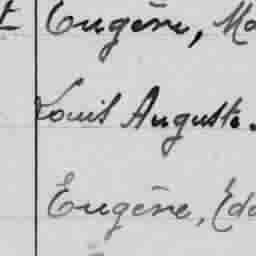 Eugène, Ma
Louis Auguste.
Eugène, Edo